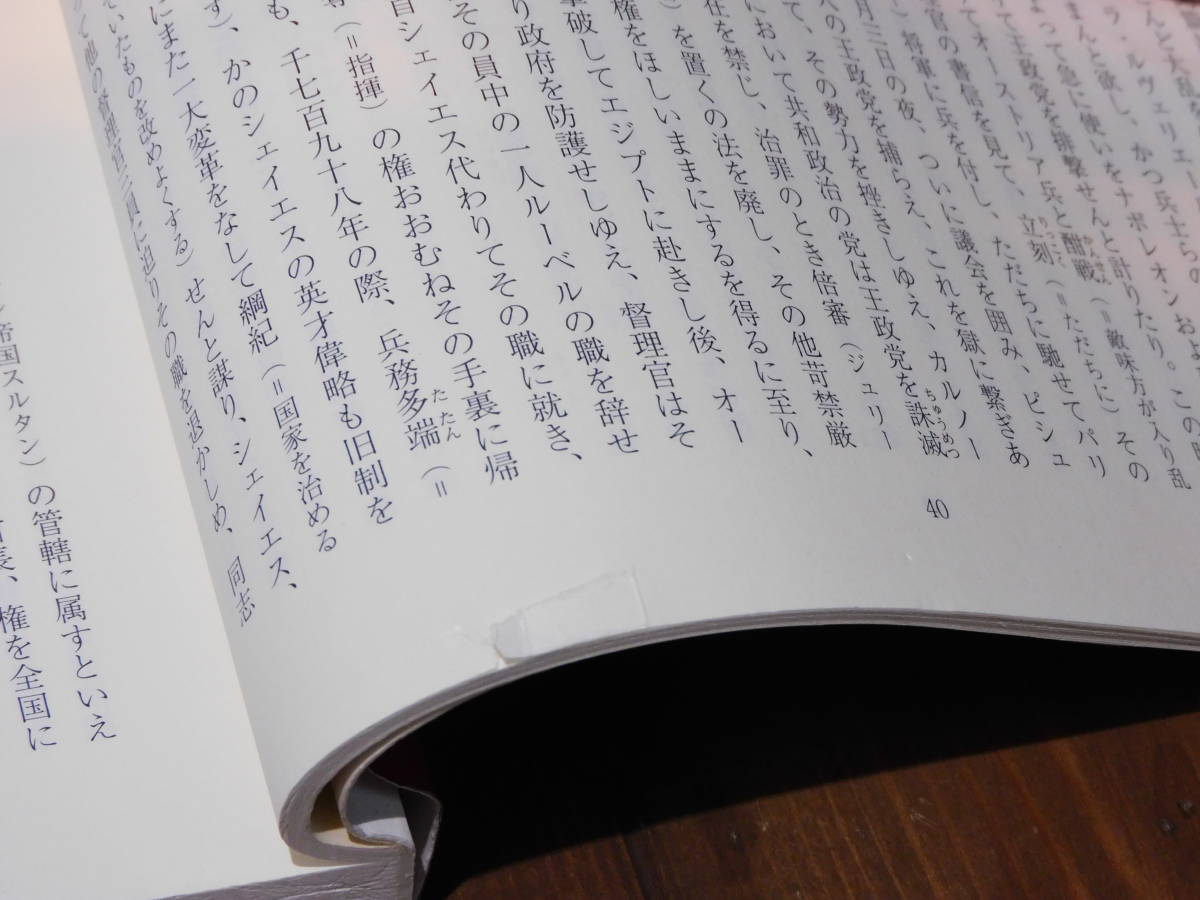 んと大乱を
ラ・ルヴェリエー
まんと欲し、かつ兵士らの
よって急に使いをナポレオンお
て王政党を排撃せんと計りたり。この時
てオーストリア兵と酣戦（＝敵味方が入り乱
官の書信を見て、立刻（＝ただちに）その
）将軍に兵を付し、ただちに馳せてパリ
月三日の夜、ついに議会を囲み、ピシュ
人の王政党を捕らえ、これを獄に繋ぎあ
て、その勢力を挫きしゆえ、カルノー
において共和政治の党は王政党を誅滅
在を禁じ、治罪のとき倍審（ジュリー
）を置くの法を廃し、その他苛禁厳
権をほしいままにするを得るに至り、
撃破してエジプトに赴きし後、オー
り政府を防護せしゆえ、督理官はそ
その員中の一人ルーベルの職を辞せ
自シェイエス代わりてその職に就き、
（＝指揮）の権おおむねその手裏に帰
も、千七百九十八年の際、兵務多端（＝
す）、かのシェイエスの英才偉略も旧制を
にまた一大変革をなして綱紀（＝国家を治める
いたものを改めよくする）せんと謀り、シェイエス、
て他の督理官三員に迫りその職を退かしめ、同志
40
帝国スルタン）の管轄に属すといえ
長、権を全国に